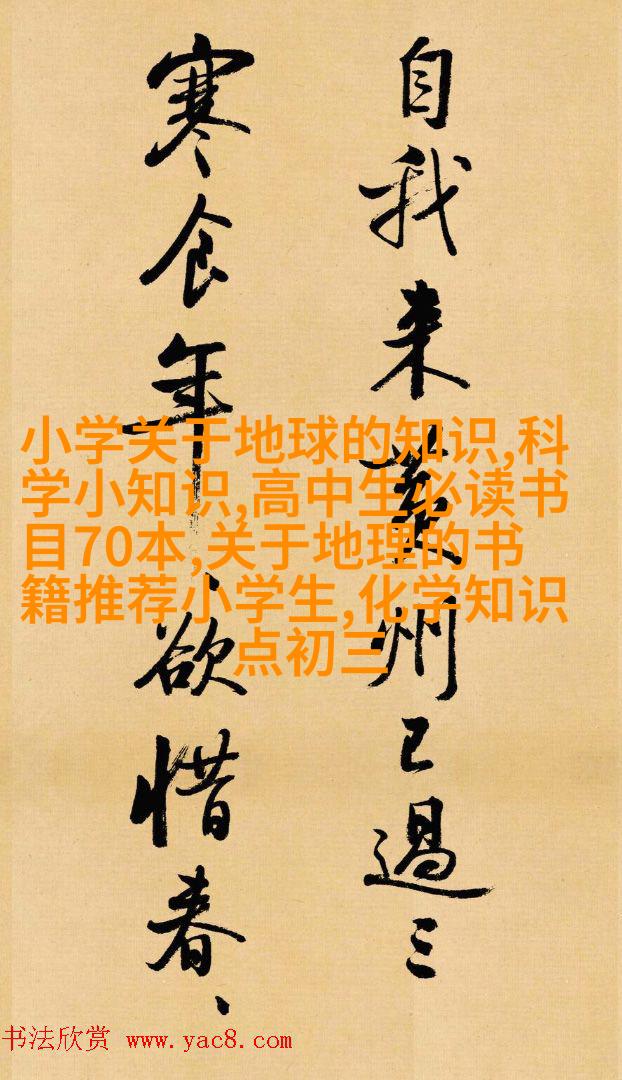 自我来黄州已過三
寒食年、欲惜春、
小学关于地球的知识,科
学小知识,高中生必读书
目70本,关于地理的书
籍推荐小学生,化学知识
点初三
书法欣赏 www.yac8.com